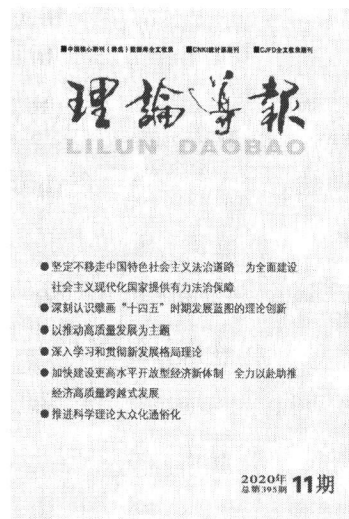 ■中国核心期刊（遴选）数据库全文收录 ■CNKI统计源期刊 ■CJFD全文收录期刊
理論导報
LILUN DAOBAO
●坚定不移走中国特色社会主义法治道路 为全面建设
社会主义现代化国家提供有力法治保障
●深刻认识擘画“十四五”时期发展蓝图的理论创新
●以推动高质量发展为主题
●深入学习和贯彻新发展格局理论
●加快建设更高水平开放型经济新体制 全力以赴助推
经济高质量跨越式发展
●推进科学理论大众化通俗化
2020年
总第395期 11期